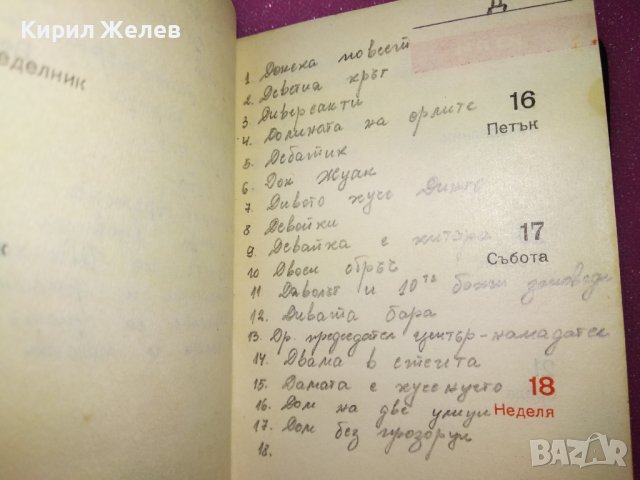 Кирил Желев
еделник
к
Д
1. Донска повест
2. Деветия кръг
3. Диверсанти
4. Долината на орлите
16
Петък
5. Дебатик
6. Дон Жуан
7. Дивото куче Динго
8. Девойки
9. Девойка с китара
17
Събота
10. Двоен обръч
11. Дяволът и 10те божи заповеди
12. Дивата бара
13. Др. председател център-нападател
14. Двама в степта
15. Дамата с кученцето
18
Неделя
16. Дом на две улици
17. Дом без прозорци
18.
BAZAR
bg